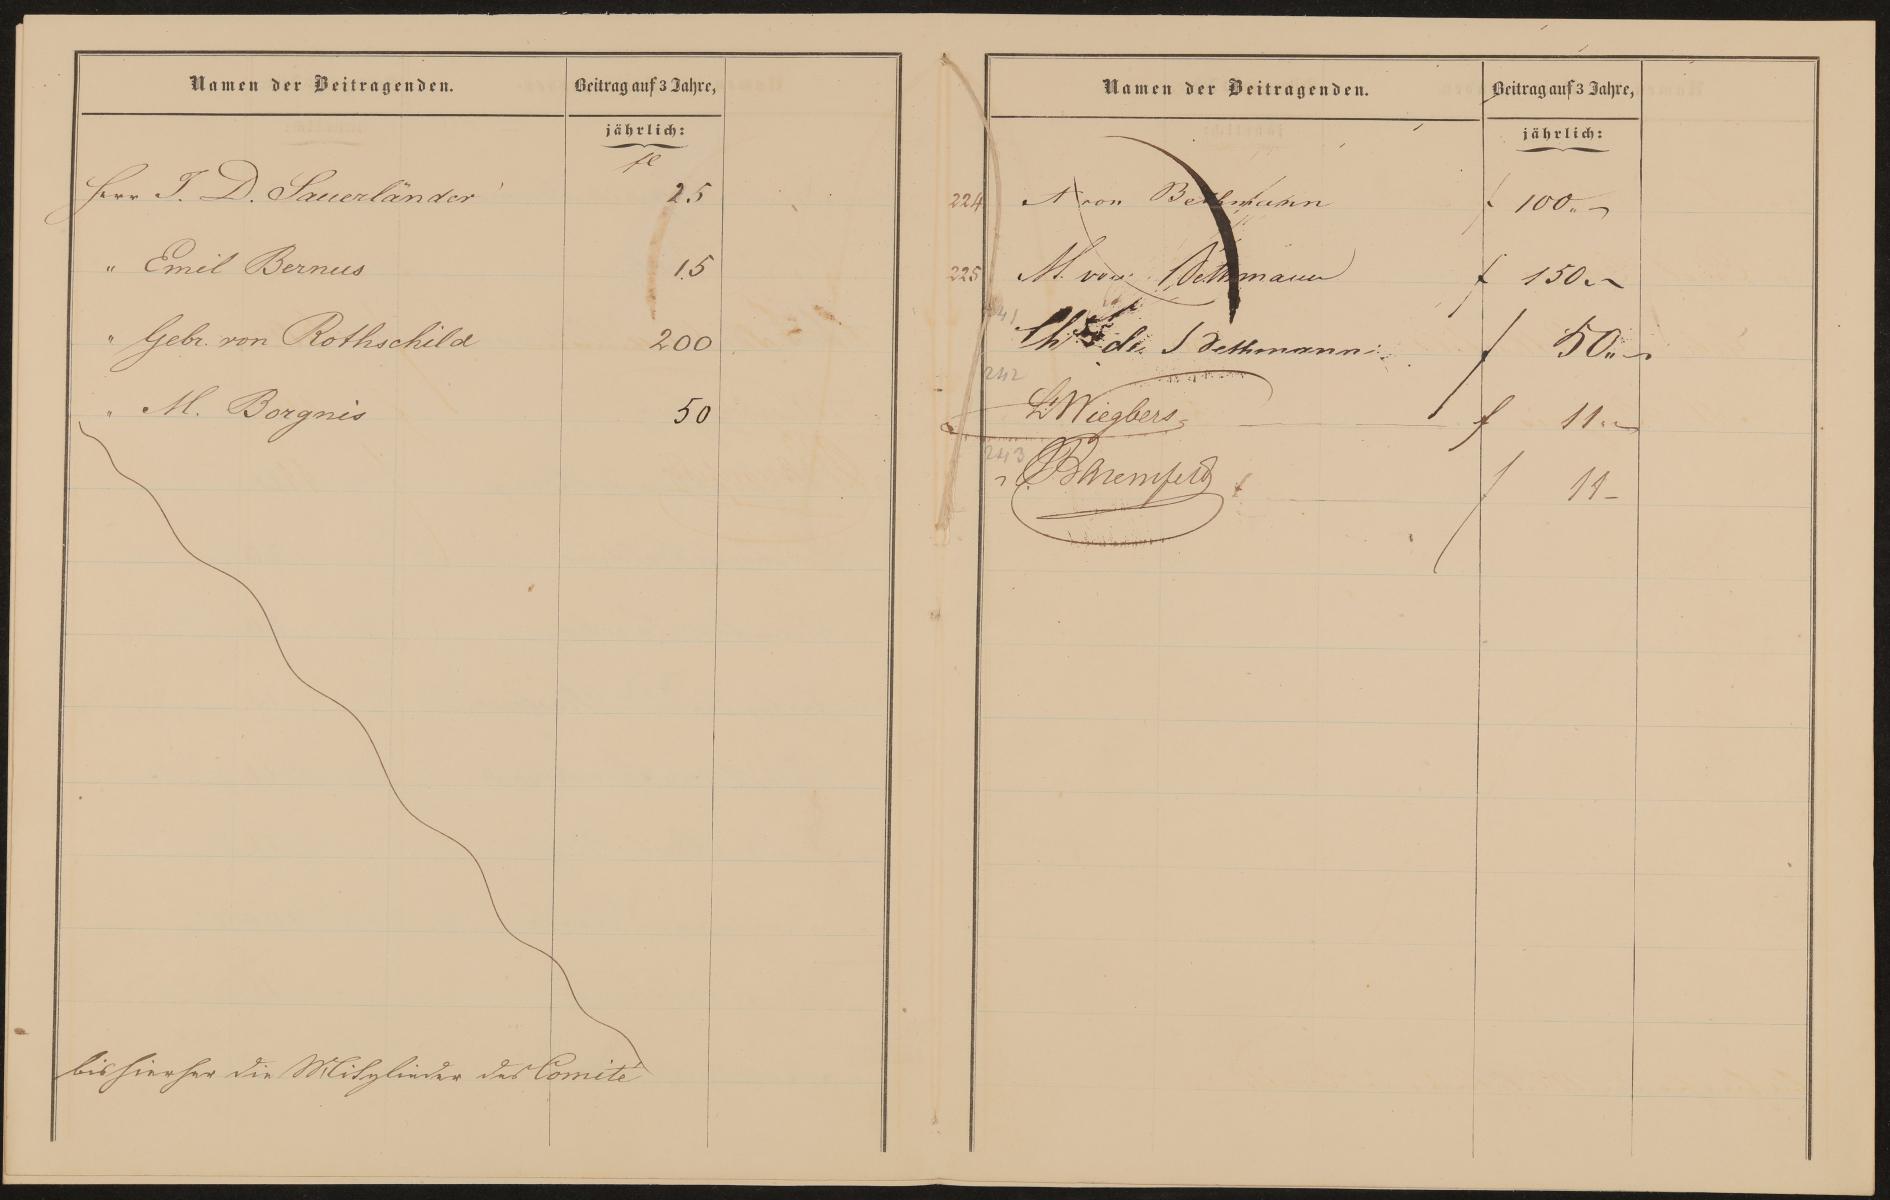 Namen der Beitragenden.
Beitrag auf 3 Jahre,
jährlich:
Herr J. D. Sauerländer 25
" Emil Bernus 15
" Gebr. von Rothschild 200
" M. Borgnis 50
bis hierher die Mitglieder des Comité
Namen der Beitragenden.
Beitrag auf 3 Jahre,
jährlich:
224 von Bethmann f 100
225 M. von Bethmann f 150
241 de Bethmann f 50
242 Wiegbers f 11
243 f 11